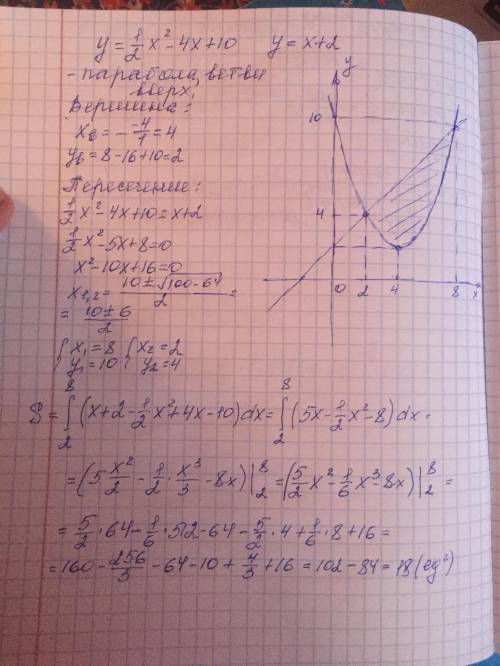 y = 1/2 x² - 4x + 10   y = x + 2
- парабола, ветви
вверх,
Вершина:
xв = - -4/1 = 4
yв = 8 - 16 + 10 = 2
Пересечение:
1/2 x² - 4x + 10 = x + 2
1/2 x² - 5x + 8 = 0
x² - 10x + 16 = 0
x1,2 = (10 ± √(100 - 64))/2 =
= (10 ± 6)/2
{ x1 = 8 { x2 = 2
{ y1 = 10 { y2 = 4
y
10
4
0 2 4 8 x
S = ∫₂⁸ (x + 2 - 1/2 x² + 4x - 10) dx = ∫₂⁸ (5x - 1/2 x² - 8) dx =
= (5 x²/2 - 1/2 · x³/3 - 8x) |₂⁸ = (5/2 x² - 1/6 x³ - 8x) |₂⁸ =
= 5/2 · 64 - 1/6 · 512 - 64 - 5/2 · 4 + 1/6 · 8 + 16 =
= 160 - 256/3 - 64 - 10 + 4/3 + 16 = 102 - 84 = 18 (ед²)